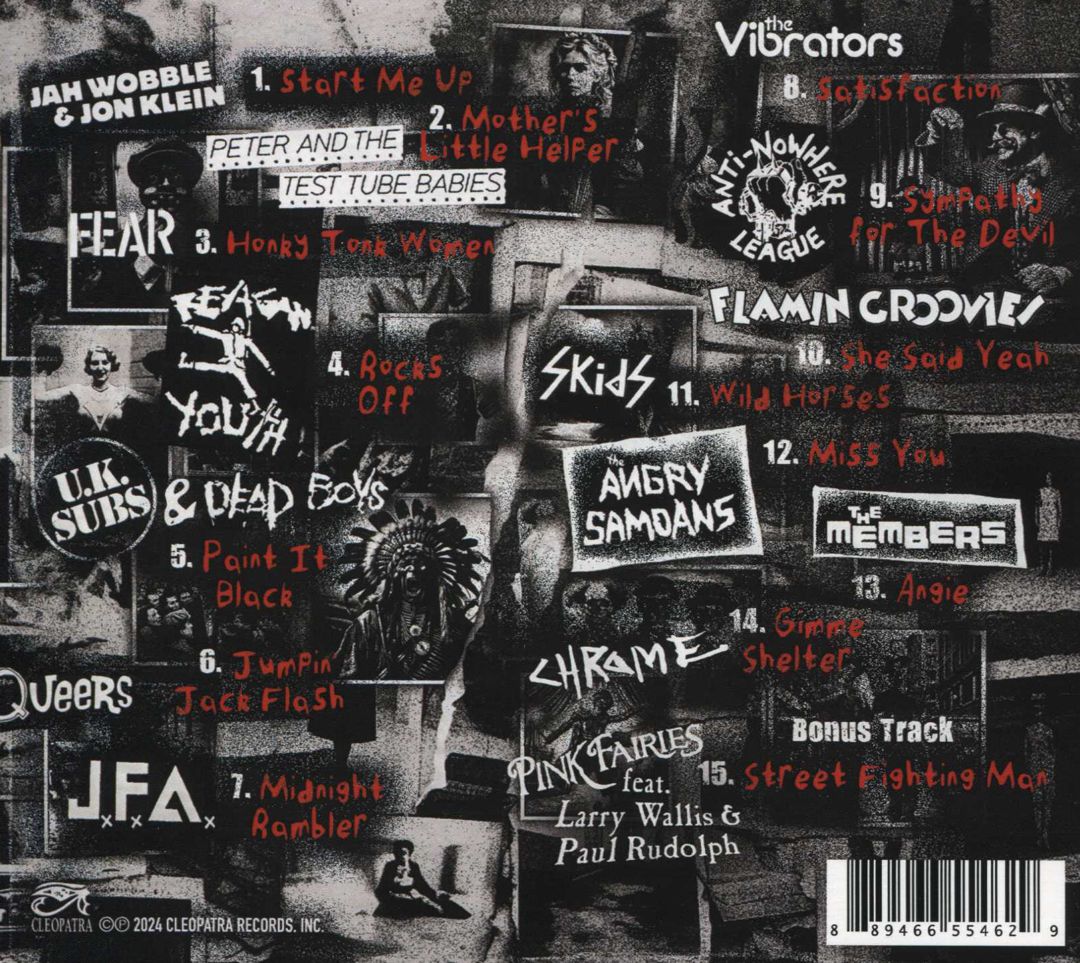 JAH WOBBLE
& JON KLEIN
1. Start Me Up
PETER AND THE
TEST TUBE BABIES
2. Mother's
Little Helper
FEAR
3. Honky Tonk Women
REAGAN
YOUTH
4. Rocks
Off
U.K.
SUBS
& DEAD BOYS
5. Paint It
Black
QUEERS
6. Jumpin'
Jack Flash
J.F.A.
7. Midnight
Rambler
the
Vibrators
8. Satisfaction
ANTI-NOWHERE
LEAGUE
9. Sympathy
for The Devil
FLAMIN GROOVIES
10. She Said Yeah
SKidS
11. Wild Horses
the
ANGRY
SAMOANS
12. Miss You
THE
MEMBERS
13. Angie
CHROME
14. Gimme
Shelter
Bonus Track
PINK FAIRIES
feat.
Larry Wallis &
Paul Rudolph
15. Street Fighting Man
CLEOPATRA
©℗ 2024 CLEOPATRA RECORDS, INC.
8 89466 55462 9